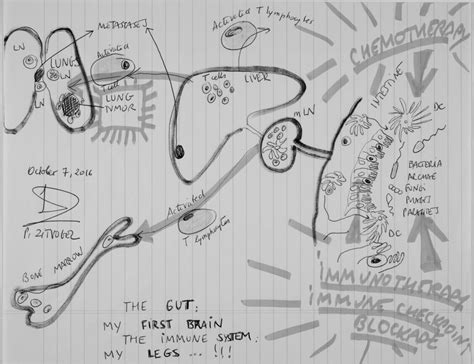 METASTASES
Activated T lymphocytes
CHEMOTHERAPY
LN
LUNGS
LN
LN
LUNG
TUMOR
Activated
T cells
T cells
LIVER
mLN
INTESTINE
DC
BACTERIA
ARCHAE
FUNGI
PHAGES
PARASITES
DC
October 7, 2016
P. ZITVOGEL
Activated
T lymphocytes
BONE MARROW
IMMUNOTHERAPY
IMMUNE CHECKPOINT
BLOCKADE
THE GUT:
MY FIRST BRAIN
THE IMMUNE SYSTEM:
MY LEGS ... !!!